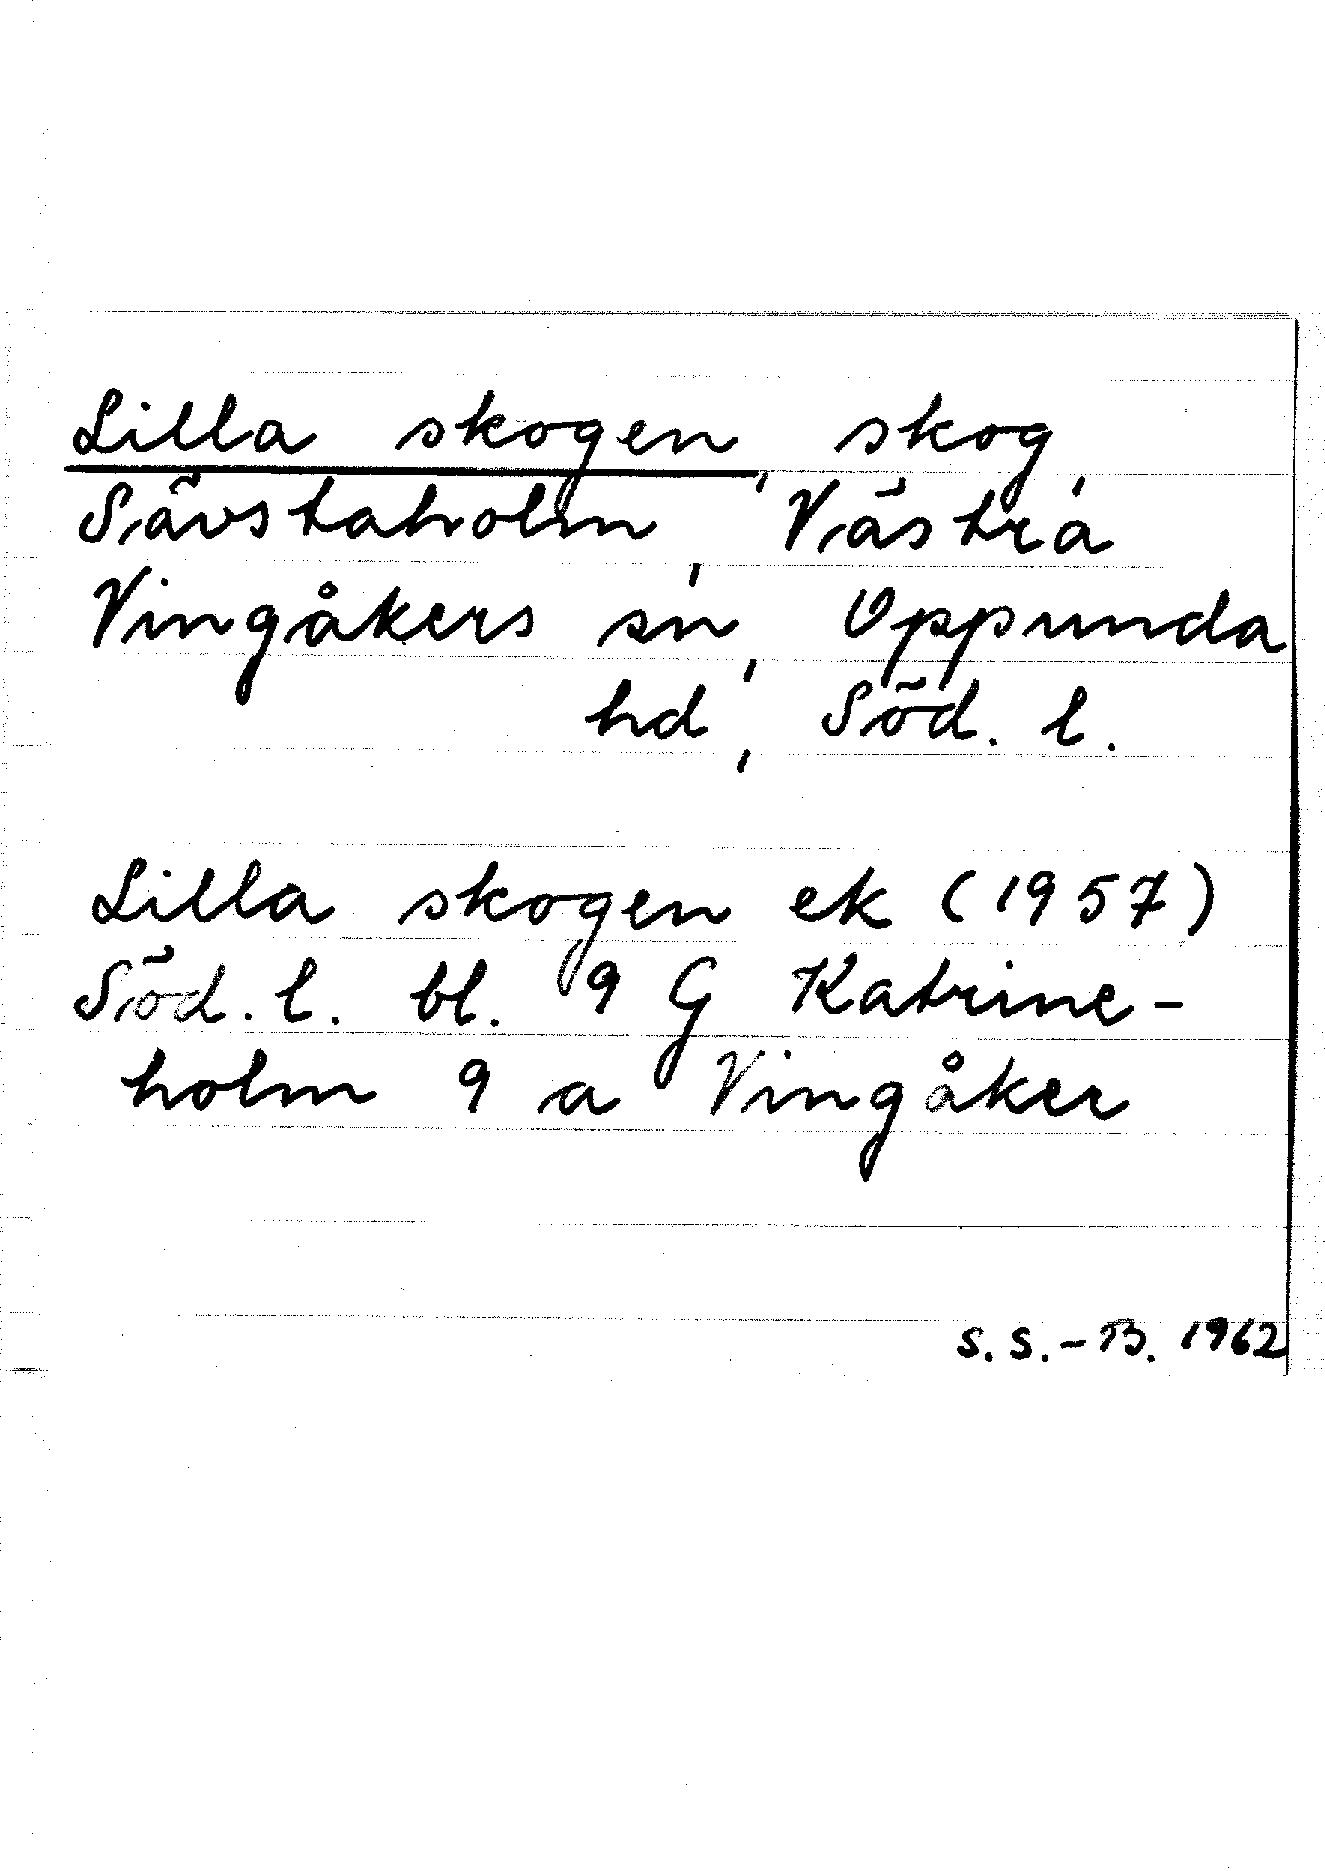 Lilla skogen, skog,
Sävstaholm, Västra
Vingåkers sn, Oppunda
hd, Söd. l.
Lilla skogen ek (1957)
Söd. l. bl. 9 G Katrine-
holm 9 a Vingåker
S. S. - B. 1962